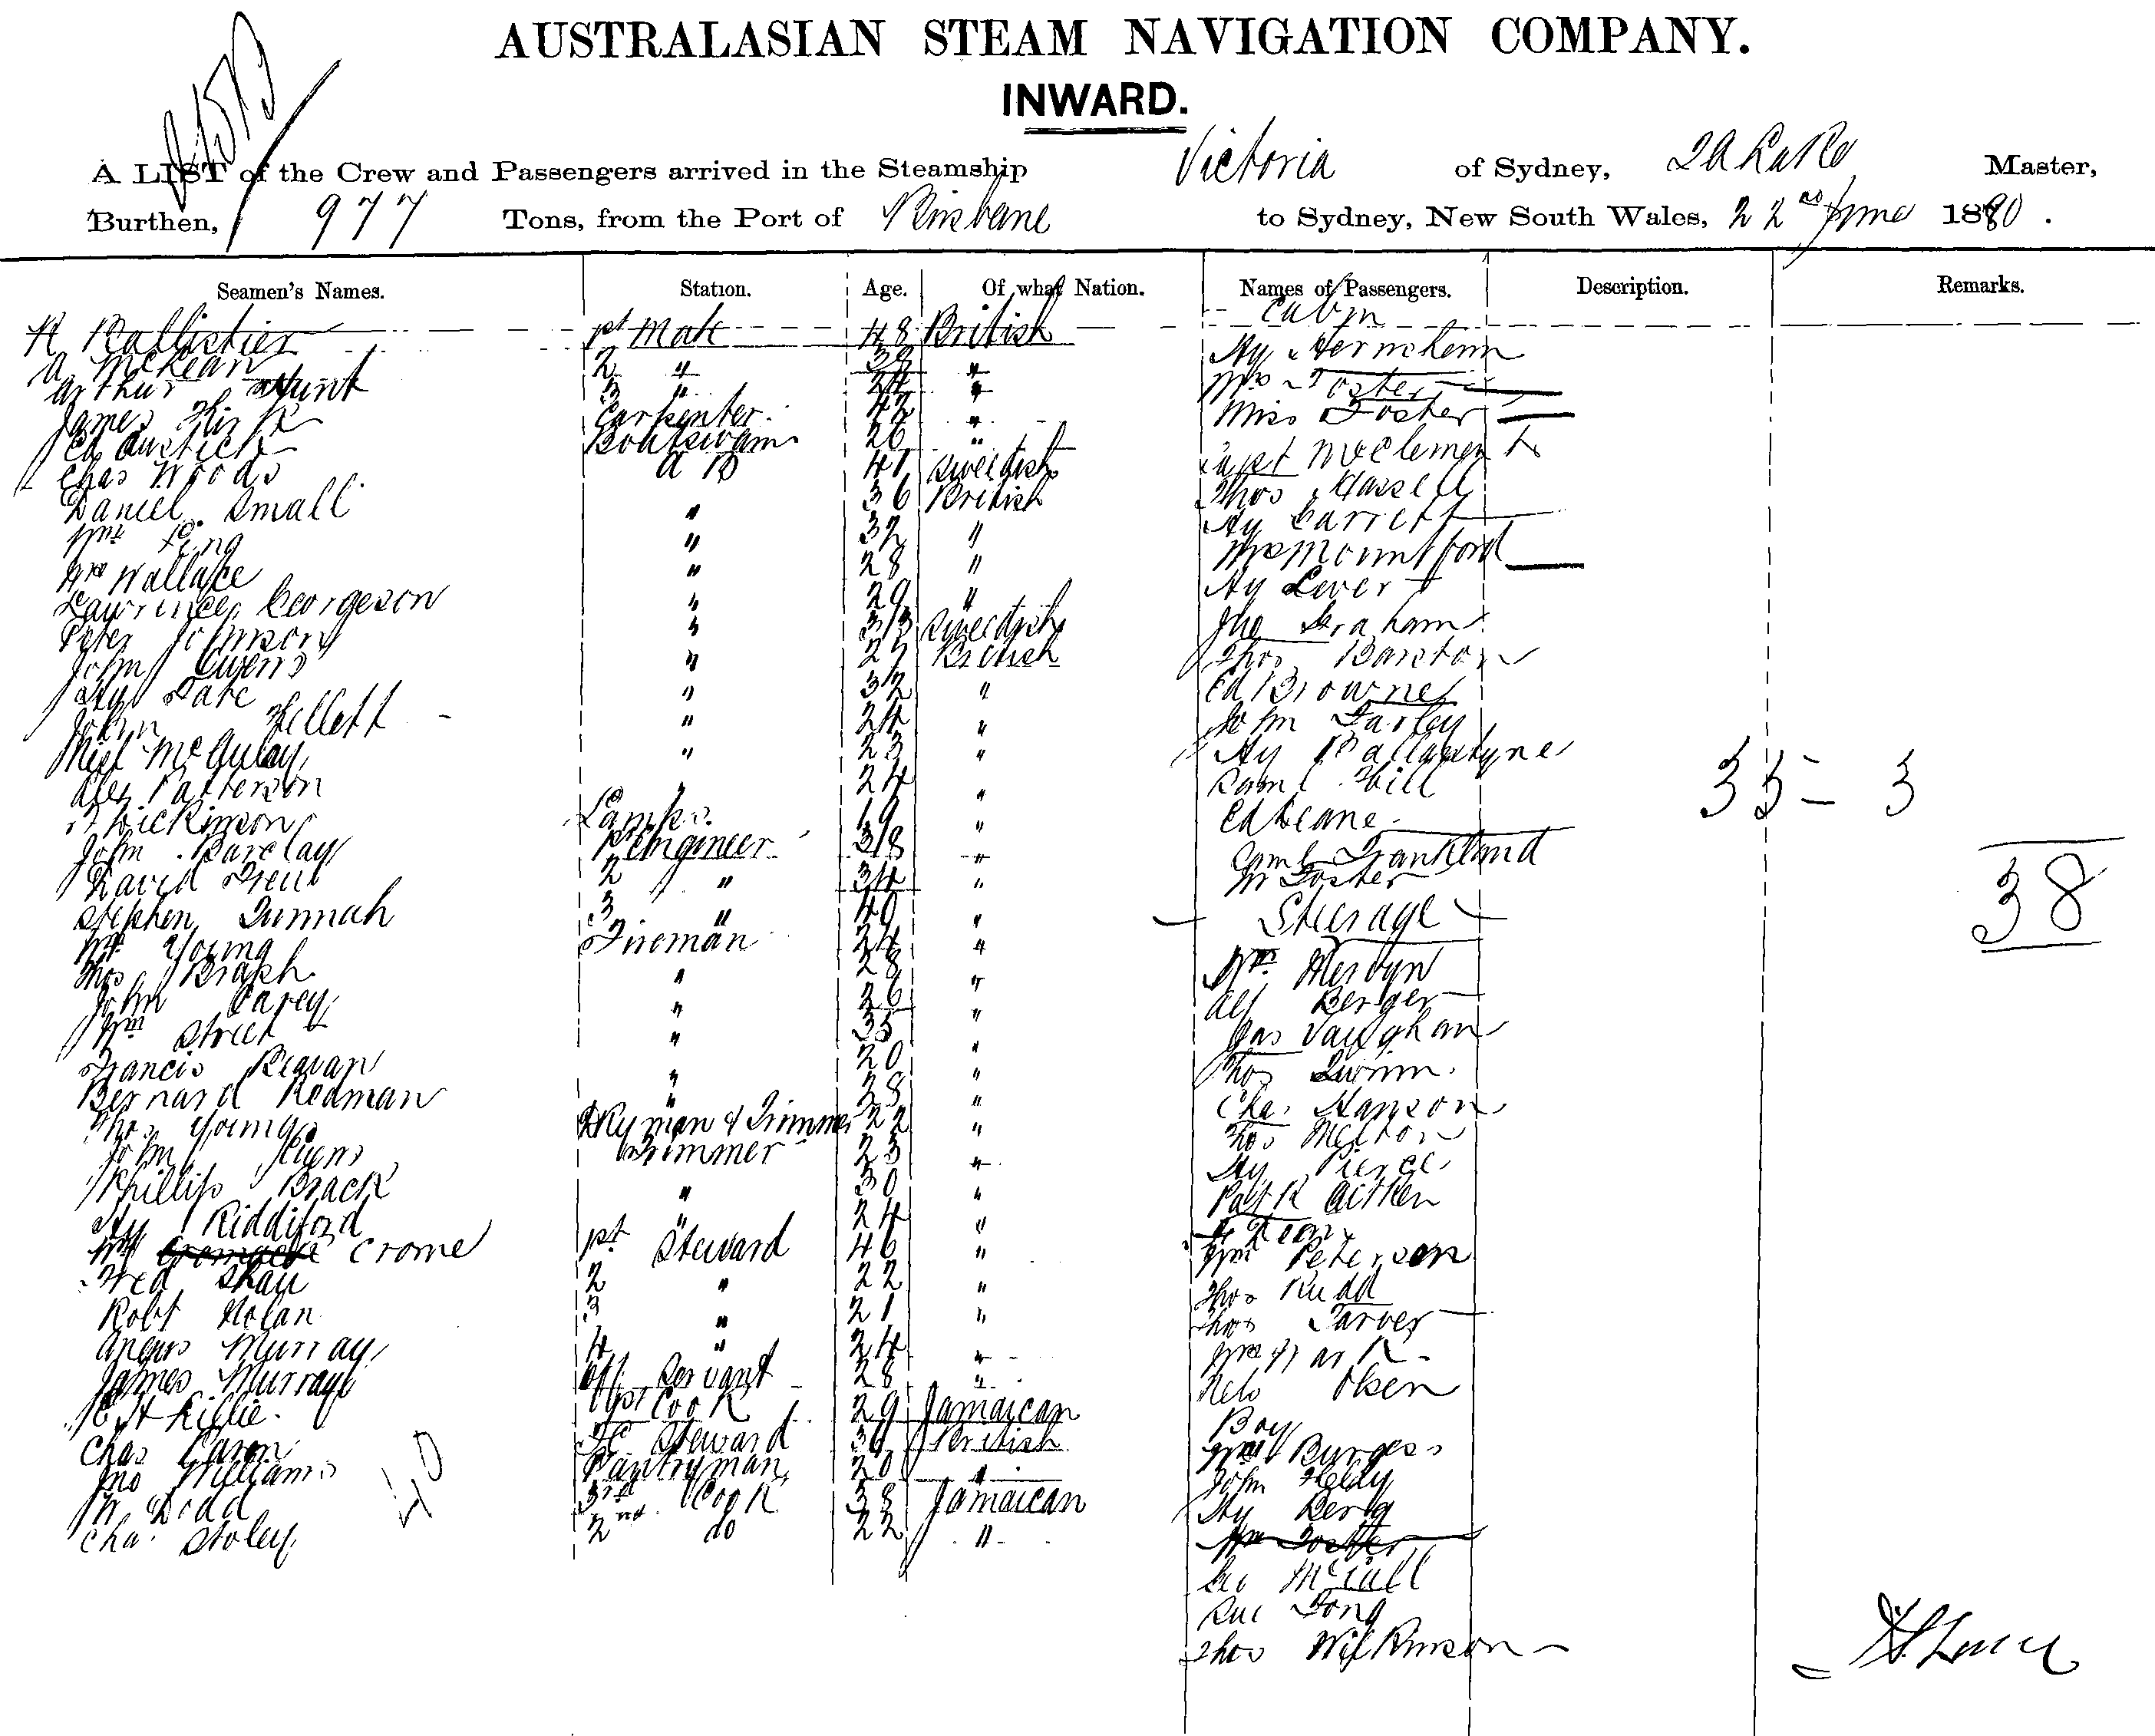 AUSTRALASIAN STEAM NAVIGATION COMPANY.
INWARD.
A LIST of the Crew and Passengers arrived in the Steamship Victoria of Sydney, Master,
Burthen, 977 Tons, from the Port of Brisbane to Sydney, New South Wales, 22nd June 1880.
Seamen's Names. Station. Age. Of what Nation. Names of Passengers. Description. Remarks.
Cabin
R Ballistier 1st Mate 48 British Hy
A. McKean 2 " 38 " Mrs Foster
Arthur Hunt 3 " 24 " Miss Foster
James Carpenter 42 " Capt McClement
Ed Austick Boatswain 26 " Thos Hassell
Chas Woods A B 41 Swedish Hy Garrett
Daniel Small " 36 British Mrs Mountford
Wm King " 32 " Hy Lever
Wm Wallace " 28 " Jno Graham
Lawrence Georgeson " 29 " Thos Barstow
Peter Johnson " 33 Swedish Ed Browne
John Owens " 27 British John Farley
Hy Tate " 32 " Hy Ballantyne
John Kellett " 24 " Saml Hill
Neil McAulay " 23 " Ed Deane
Alex Patterson " 24 " Saml Frankland
Dickinson Lamps. 19 " M Foster
John Barclay 1st Engineer 38 " Steerage
David 2 " 34 " Wm Mervyn
Stephen Tunnah 3 " 40 " Alf Berger
Wm Young Fireman 24 " Jas Vaughan
Thos Braph " 28 " Thos Quinn
John Carey " 26 " Chas Hanson
Wm Street " 35 " Thos Melton
Francis Regan " 20 " Hy Pierce
Bernard Redman " 28 " Patk Aitken
Thos Young Dkyman & Trimmer 22 "
John Trimmer 23 " Wm Peterson
Phillip Brack " 30 " Thos Rudd
Hy Riddiford " 24 " Thos Tarver
Wm Crome 1st Steward 46 "
Fred Shaw 2 " 22 " Nels Olsen
Robt Nolan 3 " 21 " Boy
Angus Murray 4 " 24 " Wm Burgess
James Murray Off. Servant 28 " John
Lillie 1st Cook 29 Jamaican Hy Berg
Chas FC Steward 36 British Foster
Jno Williams Pantryman 20 " Geo McCall
W Dodd 3rd Cook 38 Jamaican Sue Fong
Chas Stoley 2nd do 22 " Thos Wilkinson
40
35 = 3
38